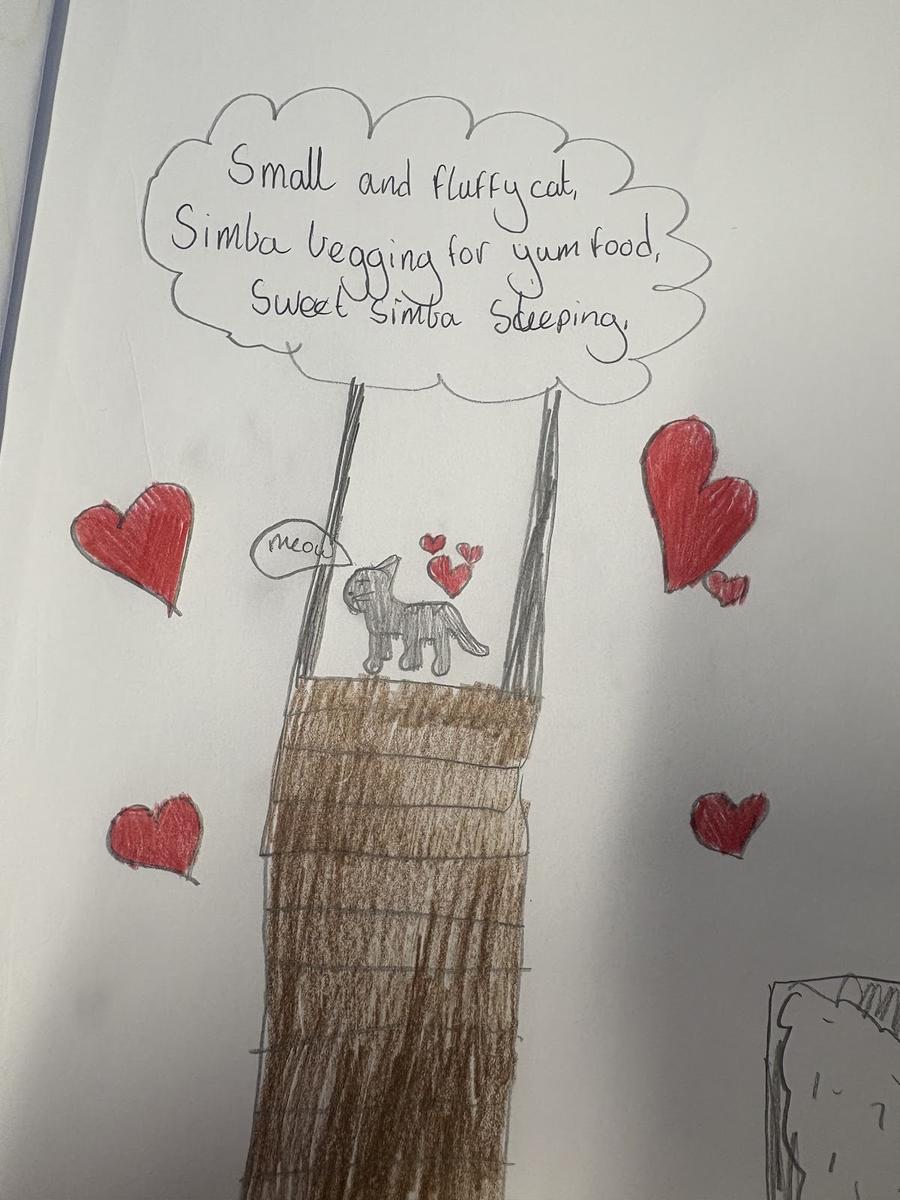 Small and fluffy cat,
Simba begging for yum food,
Sweet Simba Sleeping.
meow